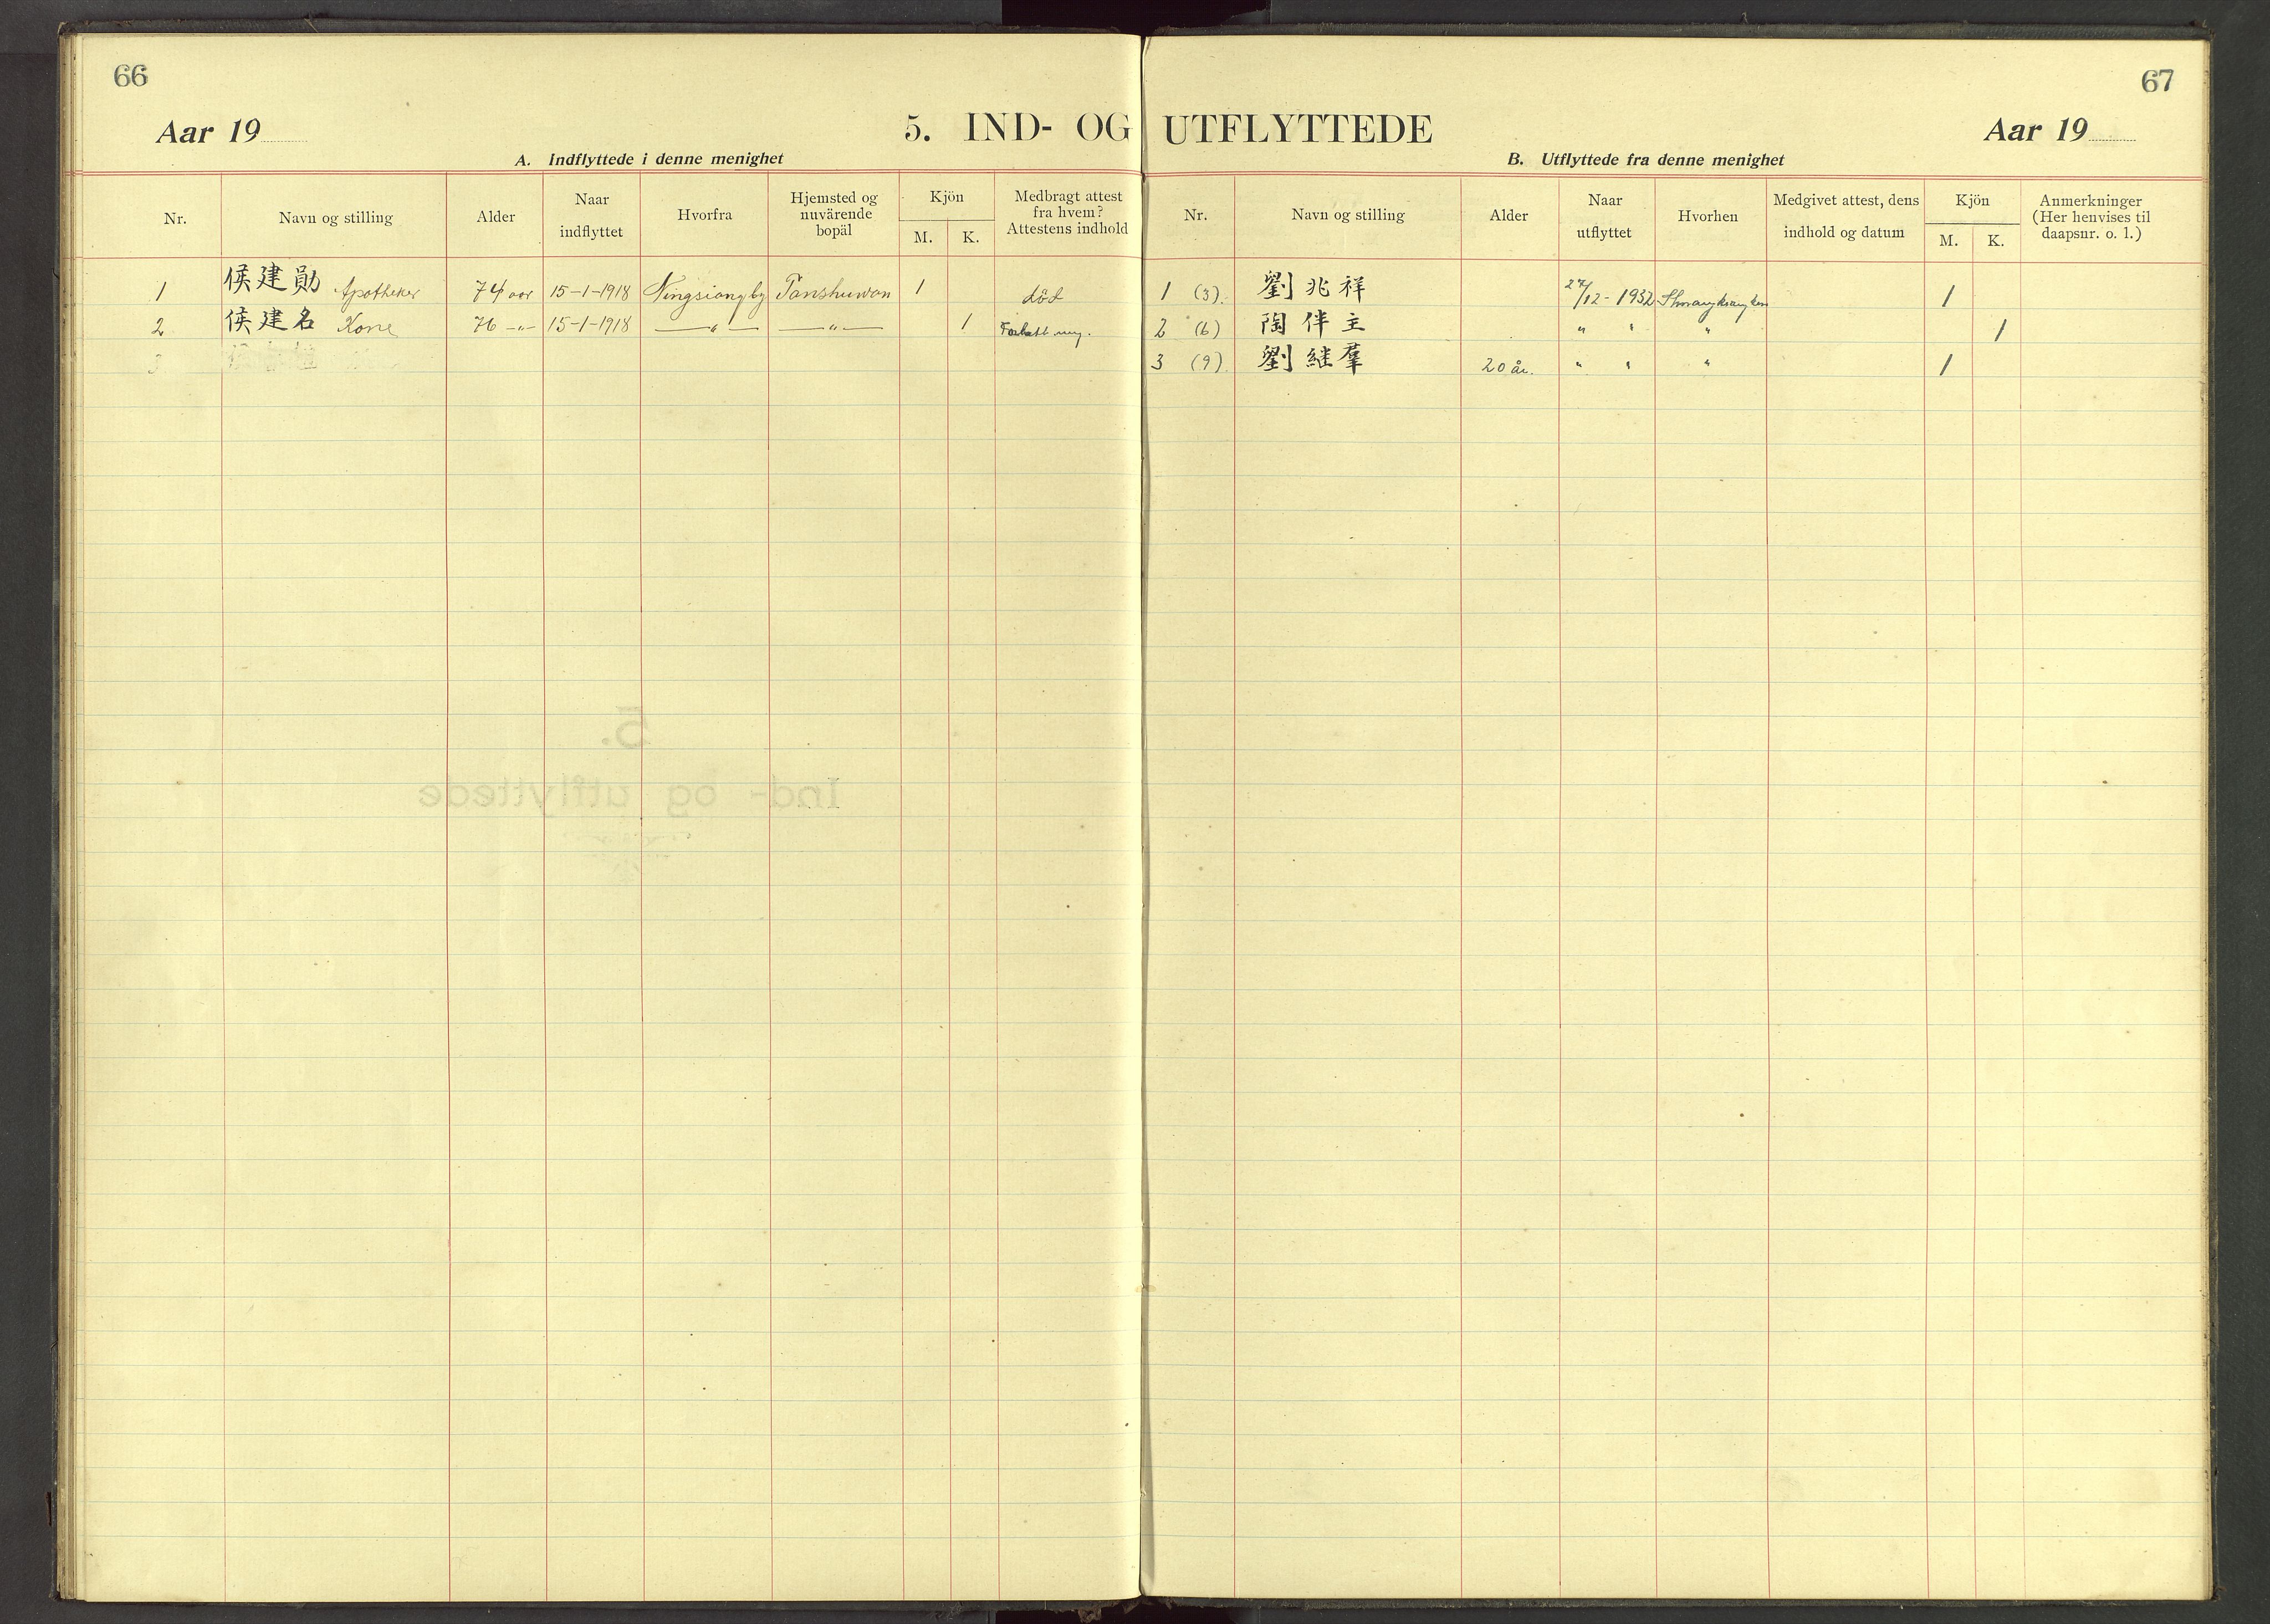 66
Aar 19
5. IND- OG
A. Indflyttede i denne menighet
Nr.
Navn og stilling
Alder
Naar
indflyttet
Hvorfra
Hjemsted og
nuværende
bopäl
Kjön
M. K.
Medbragt attest
fra hvem?
Attestens indhold
1 侯建勛 Apotheker 74 aar 15-1-1918 Ningsiang by Tanshuwan 1 död
2 侯建名 Kone 76 -〃- 15-1-1918 -〃- -〃- 1
3
67
UTFLYTTEDE
Aar 19
B. Utflyttede fra denne menighet
Nr.
Navn og stilling
Alder
Naar
utflyttet
Hvorhen
Medgivet attest, dens
indhold og datum
Kjön
M. K.
Anmerkninger
(Her henvises til
daapsnr. o. l.)
1 (3). 劉兆祥 27/12-1932 1
2 (6) 陶伴主 〃 〃 〃 1
3 (9) 劉継羣 20 år. 〃 〃 〃 1
5.
Ind- og utflyttede